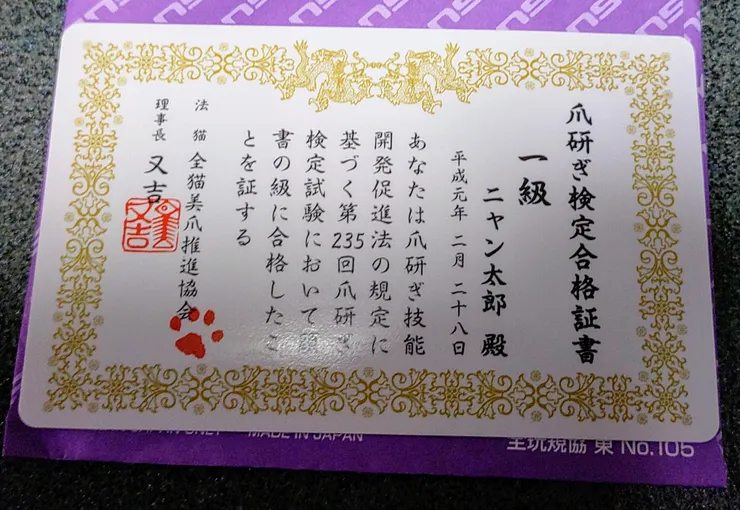 爪研ぎ検定合格証書
一級
ニャン太郎 殿
平成元年 二月 二十八日
あなたは爪研ぎ技能
開発促進法の規定に
基づく第235回爪研ぎ
検定試験において頭
書の級に合格したこ
とを証する
法猫 全猫美爪推進協会
理事長 又吉
MADE IN JAPAN
全玩規協 東 No.105